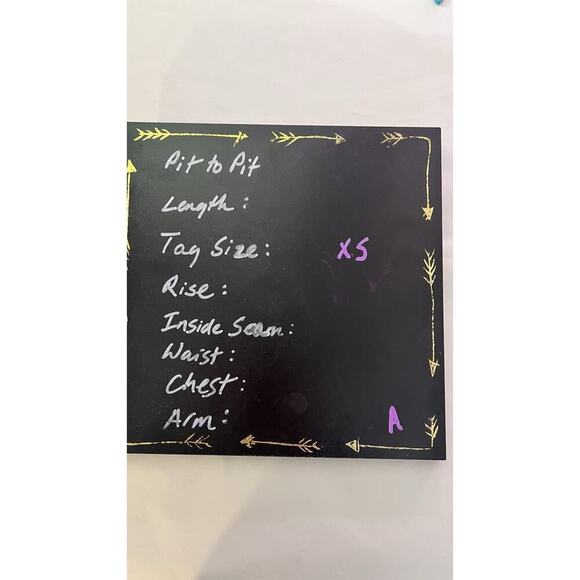 Pit to Pit
Length :
Tag Size : XS
Rise :
Inside Seam :
Waist :
Chest :
Arm : A